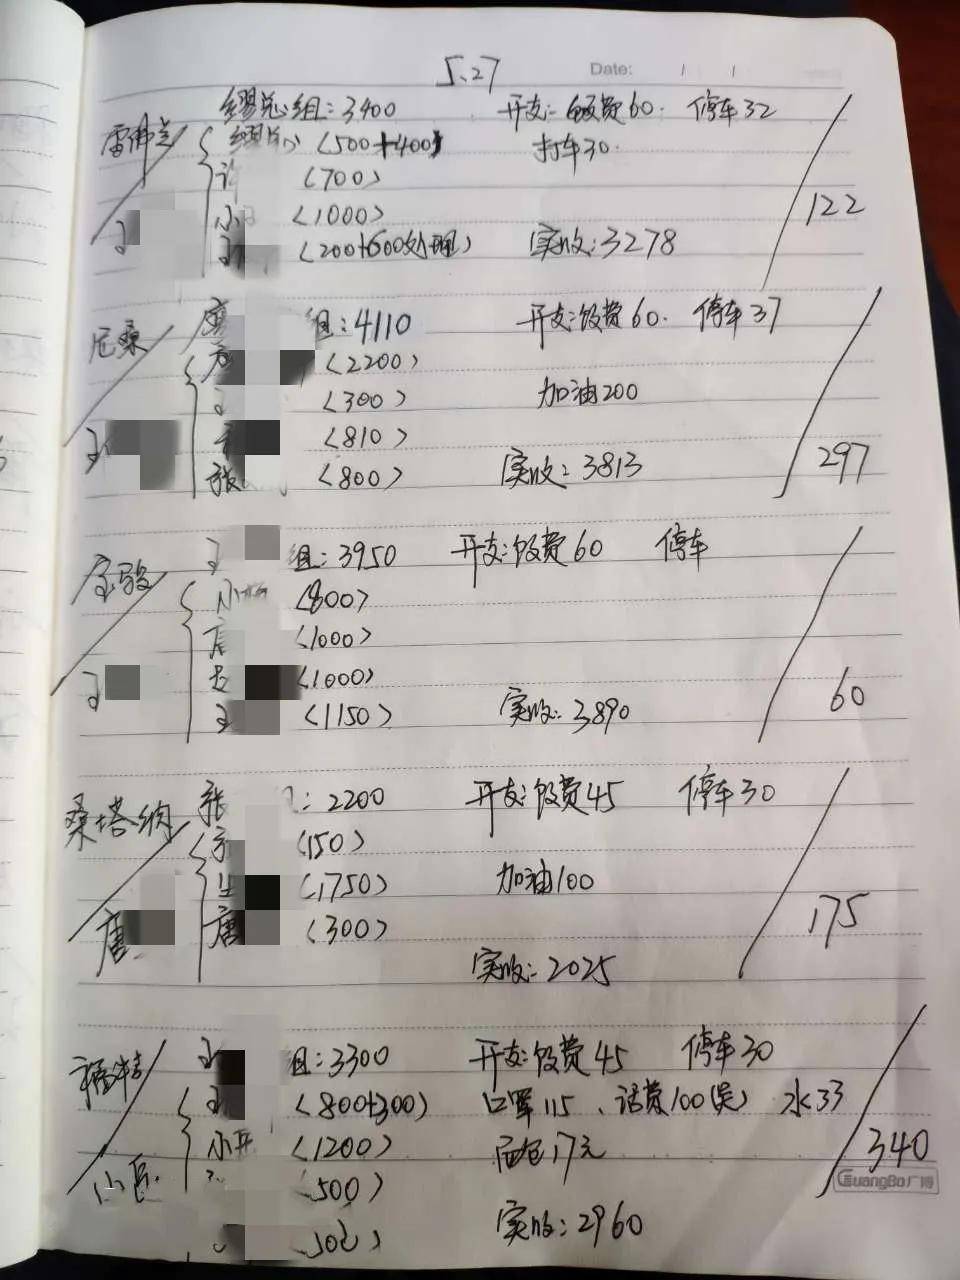 5.27 Date:
缪总组:3400 开支:饭费60. 停车32
雷佛兰
缪总 (500+400) 打车30.
许 (700)
小 (1000) 122
王 王 (200+600处理) 实收:3278
组:4110 开支:饭费60. 停车37
尼桑
(2200)
王 (300) 加油200
王 (810)
张 (800) 实收:3813 297
王 组:3950 开支:饭费60 停车
宝骏
小杨 (800)
唐 (1000)
(1000)
王 王 (1150) 实收:3890 60
张 组:2200 开支:饭费45 停车30
桑塔纳
(150)
(1750) 加油100
唐 唐 (300) 175
实收:2025
王 组:3300 开支:饭费45 停车30
福特
王 (800+300) 口罩115、话费100(吴) 水33
小 (1200) 面包17元 340
小 (500)
GuangBo广博
实收:2960